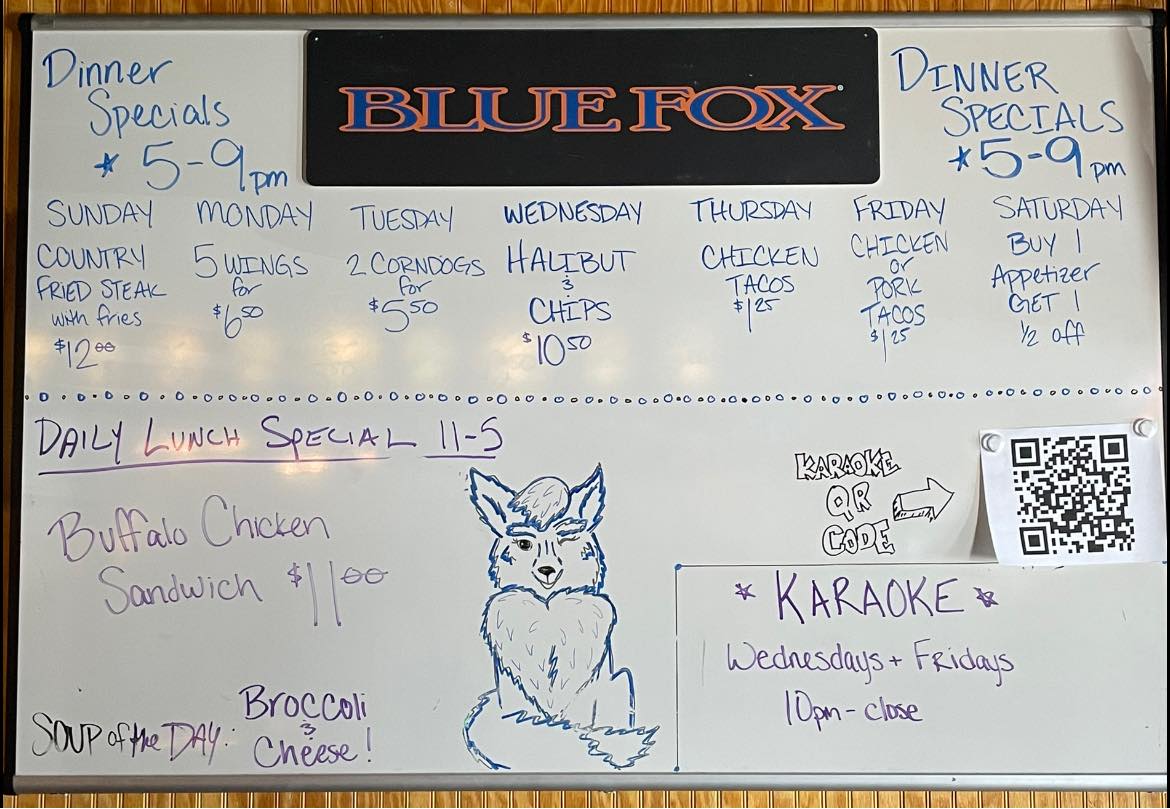 Dinner
Specials
* 5-9pm
BLUE FOX
DINNER
SPECIALS
* 5-9pm
SUNDAY
COUNTRY
FRIED STEAK
with fries
$12.00
MONDAY
5 WINGS
for
$6.50
TUESDAY
2 CORNDOGS
for
$5.50
WEDNESDAY
HALIBUT
&
CHIPS
$10.50
THURSDAY
CHICKEN
TACOS
$1.25
FRIDAY
CHICKEN
or
PORK
TACOS
$1.25
SATURDAY
BUY 1
Appetizer
GET 1
1/2 off
DAILY LUNCH SPECIAL 11-5
Buffalo Chicken
Sandwich $11.00
SOUP of the DAY:
Broccoli
&
Cheese!
KARAOKE
QR
CODE
* KARAOKE *
Wednesdays + Fridays
10pm - close